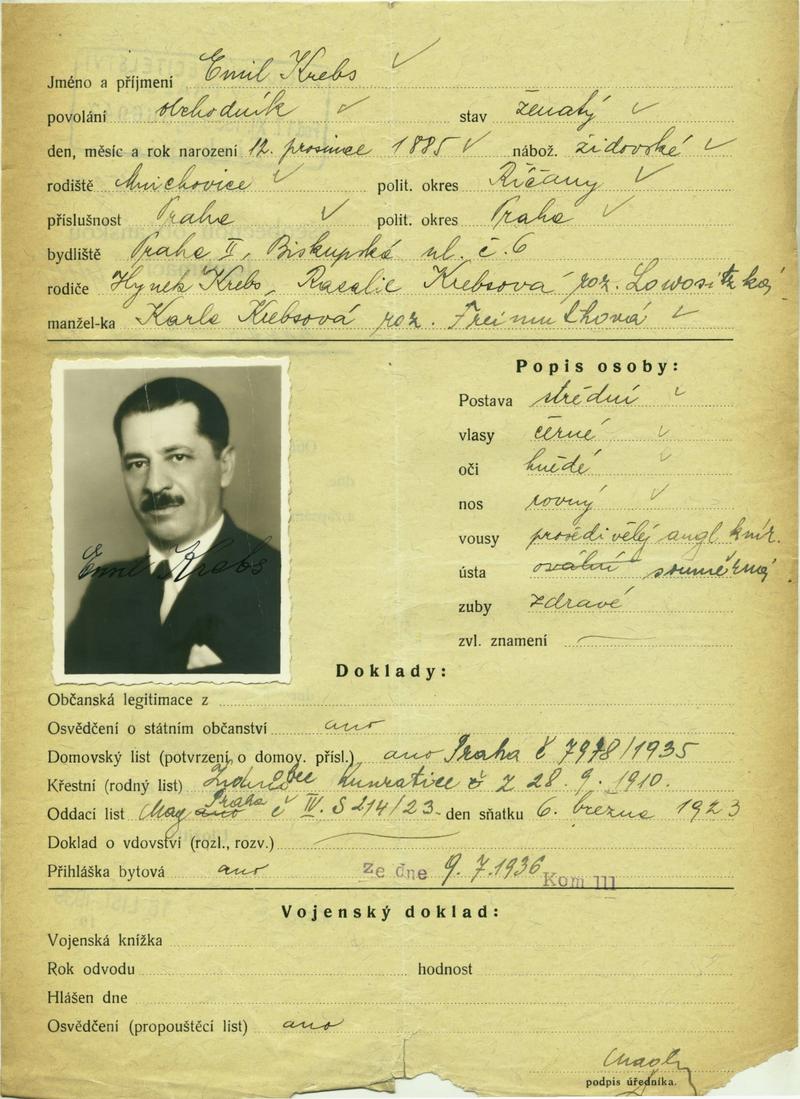 Jméno a příjmení Emil Krebs
povolání obchodník stav ženatý
den, měsíc a rok narození 12. prosince 1885 nábož. židovské
rodiště Mnichovice polit. okres Říčany
příslušnost Praha polit. okres Praha
bydliště Praha II, Biskupská ul. č. 6
rodiče Hynek Krebs, Rosalie Krebsová roz. Lowositzká
manžel-ka Karla Krebsová roz. Freimuthová
Popis osoby:
Postava střední
vlasy černé
oči hnědé
nos rovný
vousy prošedivělý angl. knír.
ústa ovální souměrná
zuby zdravé
zvl. znamení
Emil Krebs
Doklady:
Občanská legitimace z
Osvědčení o státním občanství ano
Domovský list (potvrzení o domov. přísl.) ano Praha č 7978/1935
Křestní (rodný list) Žid. obec Kunratice č z 28. 9. 1910.
Oddací list Mag ano Praha č IV. S 214/23 den sňatku 6. března 1923
Doklad o vdovství (rozl., rozv.)
Přihláška bytová ano ze dne 9. 7. 1936 Kom III
Vojenský doklad:
Vojenská knížka
Rok odvodu hodnost
Hlášen dne
Osvědčení (propouštěcí list) ano
podpis úředníka.